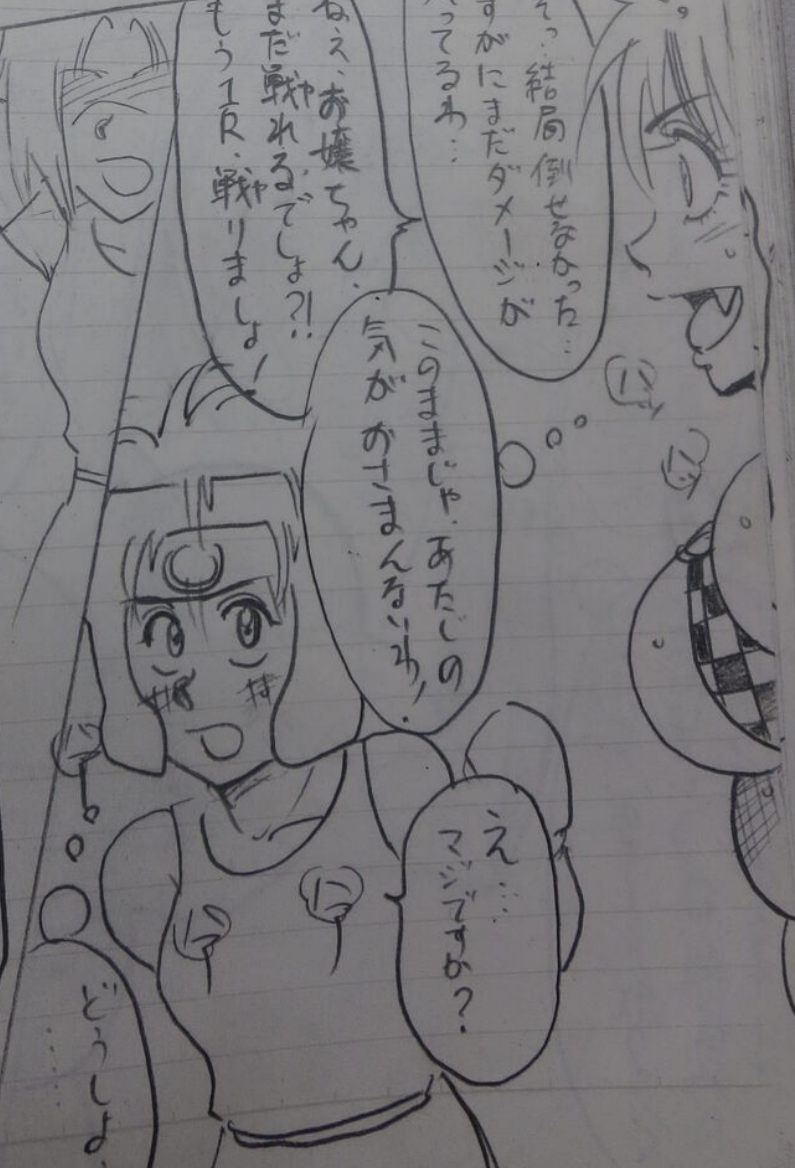 そっ…結局倒せなかった…
すがにまだダメージが
ってるわ…
ねえ、お嬢ちゃん、
まだ戦れるでしょ?!
ヤ
もう1R、戦りましょ!
ヤ
ハ
ハ
このままじゃ、あたしの
気がおさまんないわ!
え……
マジですか?
どうしよ
……